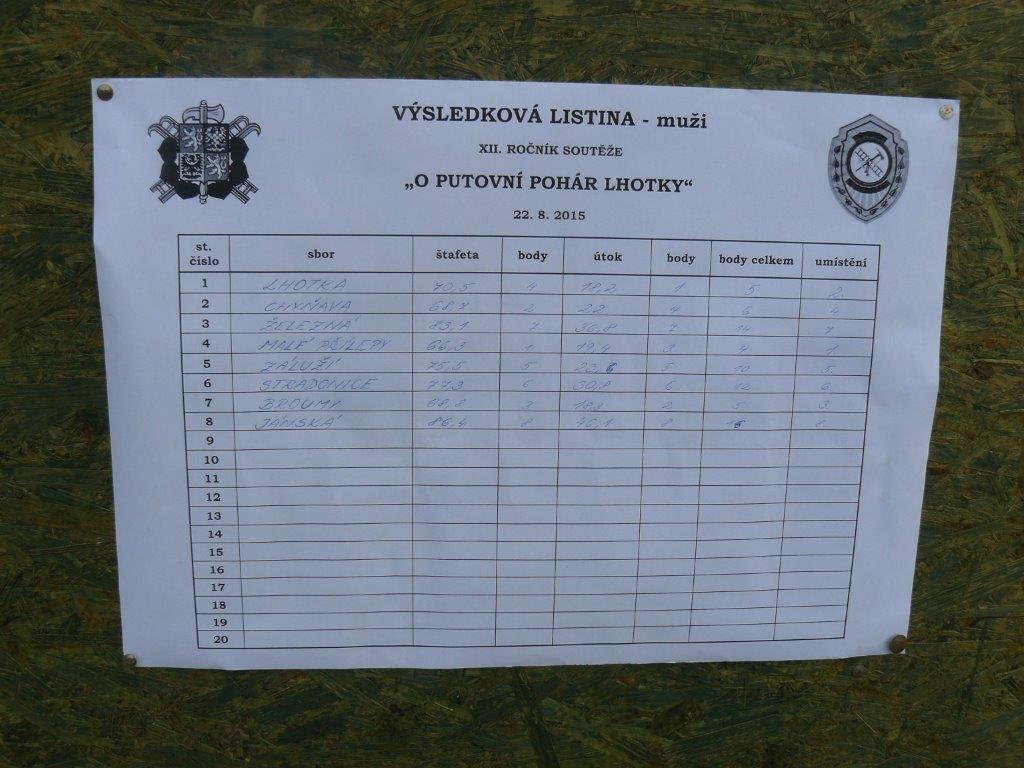 VÝSLEDKOVÁ LISTINA - muži
XII. ROČNÍK SOUTĚŽE
„O PUTOVNÍ POHÁR LHOTKY“
22. 8. 2015
st. číslo sbor štafeta body útok body body celkem umístění
1 LHOTKA 70,5 4 18,2 1 5 2.
2 CHYŇAVA 68,7 2 22 4 6 4.
3 ŽELEZNÁ 83,1 7 36,8 7 14 7.
4 MALÉ PŘÍLEPY 66,3 1 19,4 3 4 1.
5 ZÁLUŽÍ 75,5 5 23,8 5 10 5.
6 STRADONICE 77,3 6 30,8 6 12 6.
7 BROUMY 68,8 3 18,3 2 5 3.
8 JÁNSKÁ 86,4 8 46,1 8 16
9
10
11
12
13
14
15
16
17
18
19
20